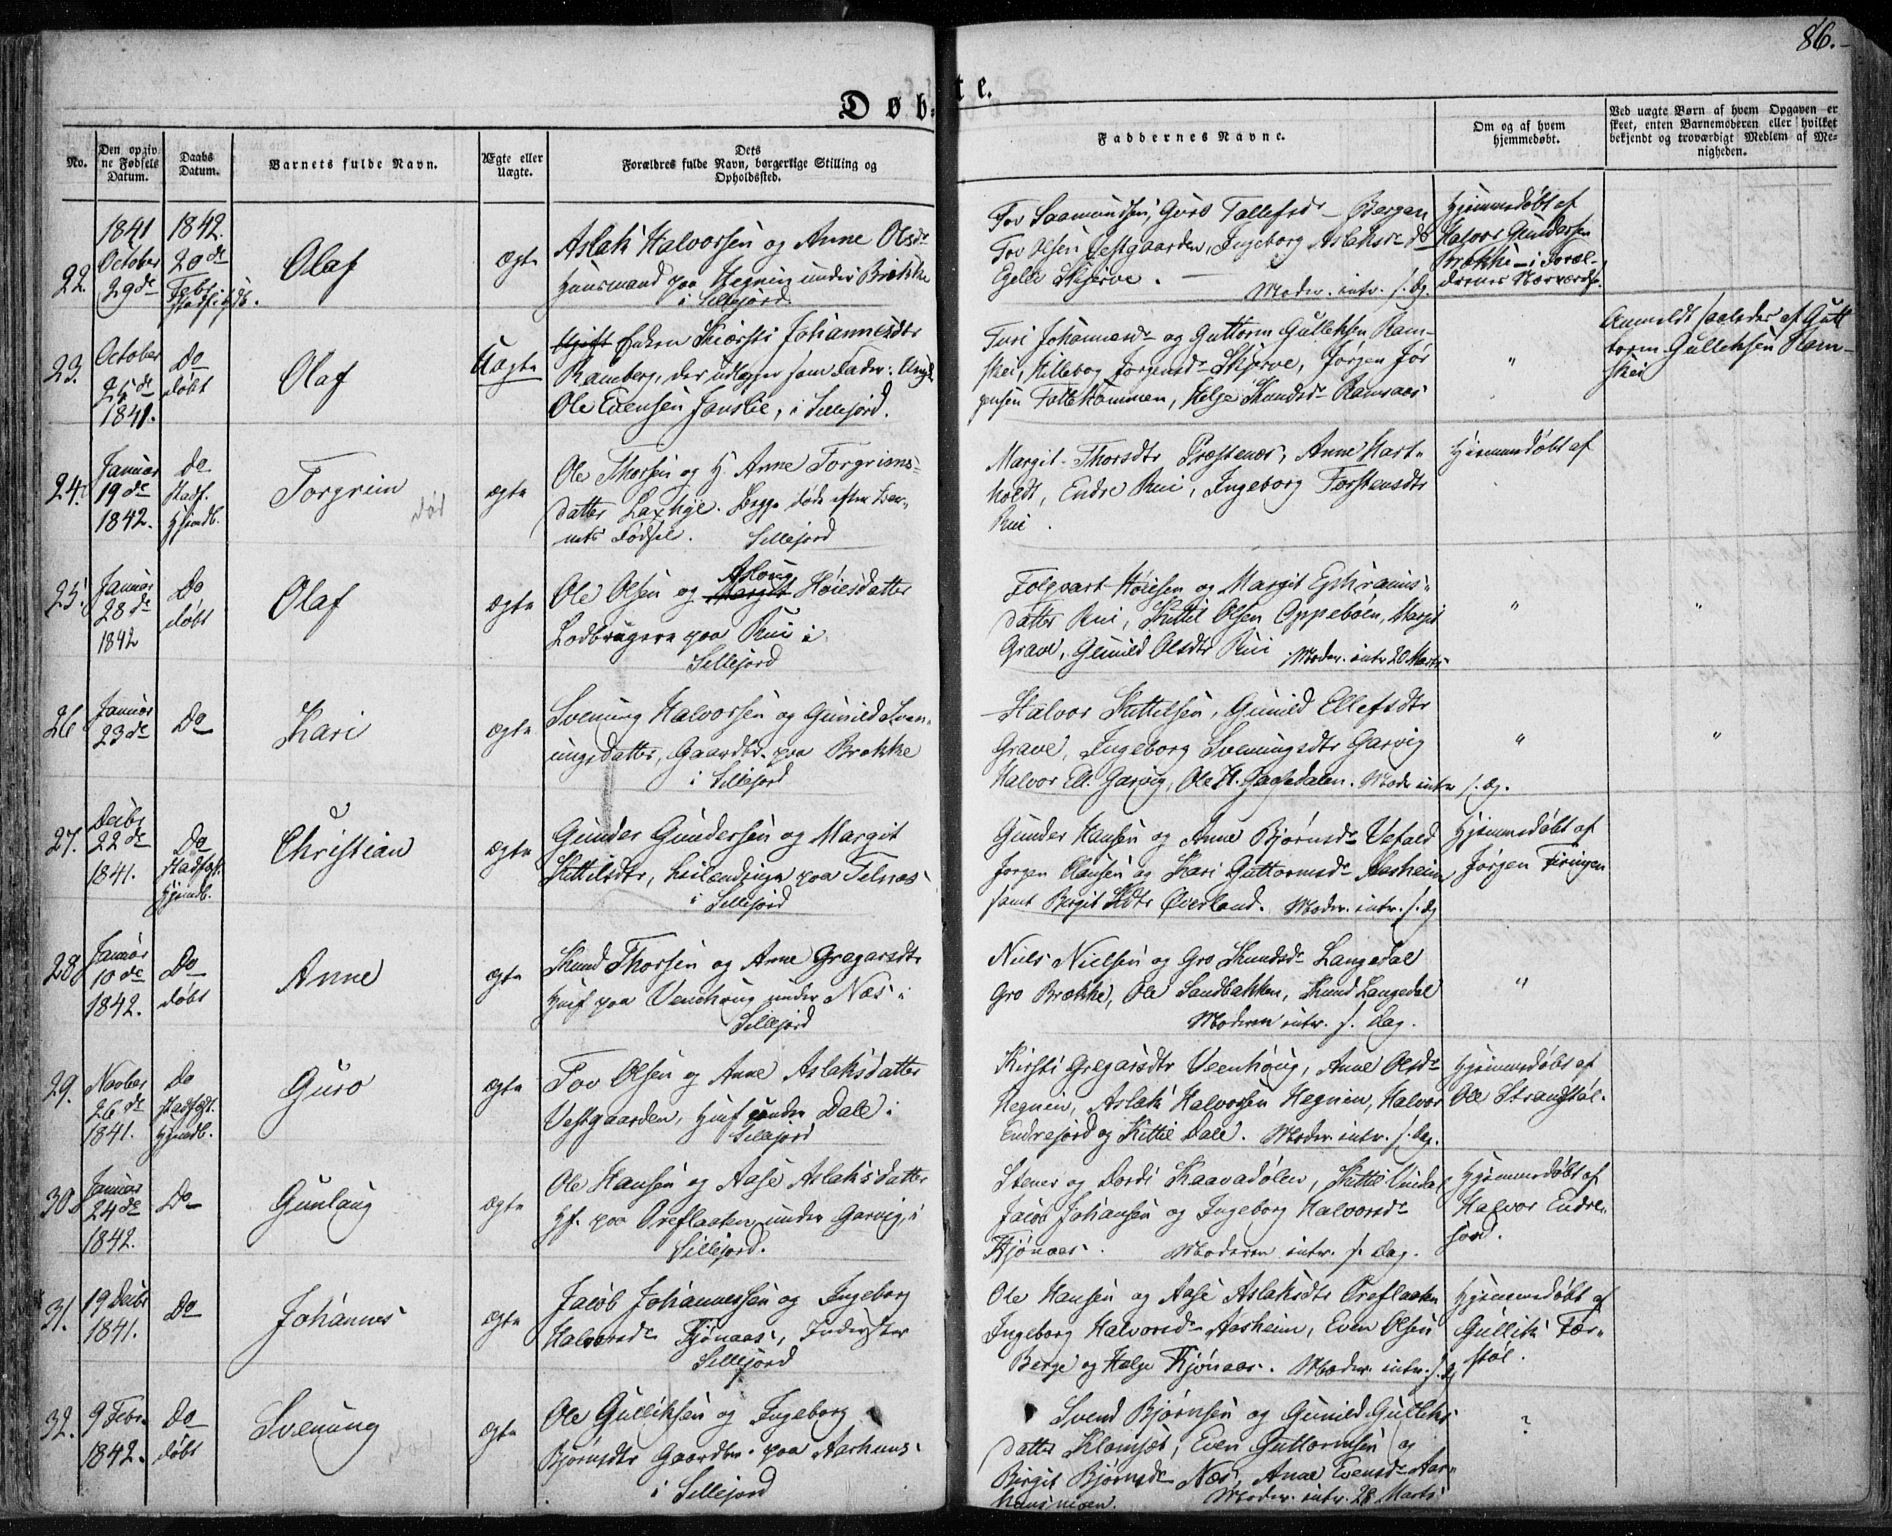 86.
Døbte.
No.
Den opgivne Fødsels Datum.
Daabs Datum.
Barnets fulde Navn.
Ægte eller Uægte.
Dets Forældres fulde Navn, borgerlige Stilling og Opholdssted.
Faddernes Navne.
Om og af hvem hjemmedøbt.
Ved uægte Børn af hvem Opgaven er skeet, enten Barnemoderen eller hvilket bekjendt og troværdigt Medlem af Menigheden.
22.
1841 October 29de
1842. 20de Febr.
Olaf
ægte
Aslak Halvorsen og Anne Olsdr
Huusmand paa Hegnin under Brække
i Sillejord.
Tov Saamundsen, Guro Tallefsdr Bergan
Tov Olsen Vestgaarden, Ingeborg Aslaksdr do
Egelli Skjerve.
Moder. intr. s. Dg.
Hjemmedøbt af
Halvor Gundersen
Brække i Foræl-
drenes Nærværelse
23.
October 25de 1841.
Do døbt
Olaf
Uægte
Enken Kiersti Johannesdtr
Ramberg, der udlægger som Fader: Ungk.
Ole Evensen Jonslie, i Sillejord.
Turi Johannesdr og Guttorm Gulleksen Ram-
skei, Hillebog Jorgensdr Skjerve, Jørgen Jør
gensen Follekommen, Helje Knudsdr Ramsaas
"
Anmeldt saaledes af Gutt
torm Gulleksen Ram-
skei
24.
Januar 19de 1842.
Do stadf. hjemdb.
Torgrim
død
ægte
Ole Thorsen og H. Anne Torgrims-
datter Laxhye. Begge døde efter Bar-
nets Fødsel. Sillejord
Margit Thorsdtr Præstenes, Anne Hart-
holdt, Endre Rui, Ingeborg Torstensdtr
Rui.
Hjemmedøbt af
25.
Januar 28de 1842
Do døbt
Olaf
ægte
Asloug
Ole Olsen og Margit Høiesdatter
Lodbrugere paa Rui i
Sillejord
Folqvart Høiesen og Margit Ephraims-
datter Rui, Kittil Olsen Oppeboen, Margit
Grave, Gunild Olsdtr Rui Moder. intr 20 Marts
"
"
26
Januar 23de
Do
Kari
ægte
Svenung Halvorsen og Gunild Sven-
ungsdatter, Gaardbr. paa Brække
i Sillejord
Halvor Kittilsen, Gunild Ellefsdtr
Grave, Ingeborg Svenungsdtr Garvig
Halvor Ell. Garvig, Ole H. Haasedalen. Moder intr s. Dg.
"
"
27.
Decbr 22de 1841.
Do Stadfæst. hjemdb.
Christian
ægte
Gunder Gundersen og Margit
Kittilsdtr, Leilændinge paa Telnæs
i Sillejord
Gunder Hansen og Anne Bjørnsdr Vefald
Jorgen Olausen og Kari Guttormsdr Aasheim
samt Birgit Kdtr Øverland. Moder. intr. s. Dg
Hjemmedøbt af
Jørgen Tiringen
28
Januar 10de 1842.
Do døbt
Anne
ægte
Knud Thorsen og Anne Gregarsdtr
Huusf paa Venehoug under Næs i
Sillejord
Niels Nielsen og Gro Knudsdr Langedal
Gro Brække, Ole Sandbakken, Knud Langedal
Moderen intr. s. Dag.
"
29.
Novber 26de 1841.
Do Stadfæst. hjemdb.
Guro
ægte
Tov Olsen og Anne Aslaksdatter
Vestgaarden, Husf. under Dale i
Sillejord
Kirsti Gregarsdtr Veenhoug, Anne Olsdr
Hegnin, Aslak Halvorsen Hegnin, Halvor
Endrejord og Kittil Dale. Moder. intr. s. Dag.
Hjemmedøbt af
Ole Strandstøl.
30
Januar 24de 1842.
Do
Gunloug
ægte
Ole Hansen og Aase Aslaksdatter
Hf. paa Oreflaaten under Garvig, i
Sillejord.
Stener og Dordi Kaavadølen, Kittil Undal
Jacob Johansen og Ingeborg Halvorsdr
Tjønaas. Moderen intr. s. Dag.
Hjemmedøbt af
Halvor Endre-
jord.
31.
19 Decbr 1841.
Do
Johannes
ægte
Jacob Johannessen og Ingeborg
Halvorsdr Tjønaas, Inderster
Sillejord
Ole Hansen og Aase Aslaksdtr Oreflaaten
Ingeborg Halvorsdr Aasheim, Even Olsen
Berge og Helje Tjønaas. Moder. intr. s. Dg
Hjemmedøbt af
Gullik Tær-
støl.
32.
9 Febr. 1842.
Do døbt
Svenung
ægte
Ole Gulliksen og Ingeborg
Bjørnsdtr Gaardbr. paa Aarhuus
i Sillejord
Svend Bjørnsen og Gunild Gulliks
datter Klomset, Even Guttormsen og
Birgit Bjørnsdr Næs, Anne Evensdr Aar-
huusmoen. Moder. intr. 28 Marts
?